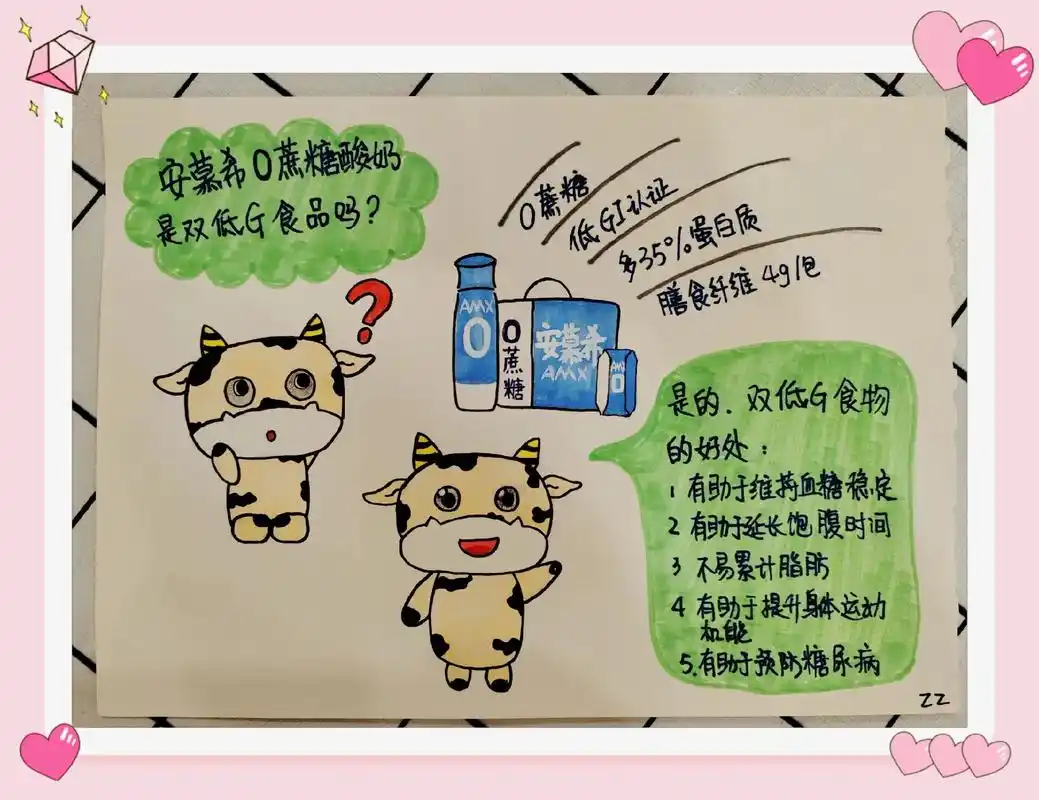 安慕希0蔗糖酸奶
是双低G食品吗?
?
0蔗糖
低GI认证
多35%蛋白质
膳食纤维4g/包
AMX
0
0
蔗
糖
安慕希
AMX
AMX
0
是的.双低G食物
的好处:
1 有助于维持血糖稳定
2 有助于延长饱腹时间
3 不易累计脂肪
4 有助于提升身体运动
机能
5.有助于预防糖尿病
ZZ